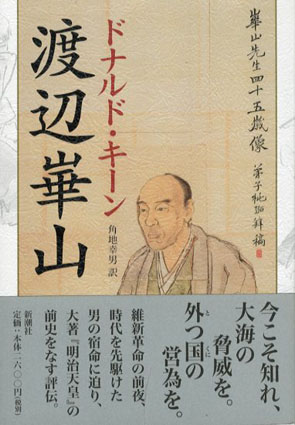 崋山先生四十五歳像
弟子椿弼拜稿
ドナルド・キーン
渡辺崋山
角地幸男 訳
今こそ知れ、
大海の
脅威を。
外つ国の
と くに
営為を。
維新革命の前夜、
時代を先駆けた
男の宿命に迫り、
大著『明治天皇』の
前史をなす評伝。
新潮社
定価：本体一六〇〇円（税別）